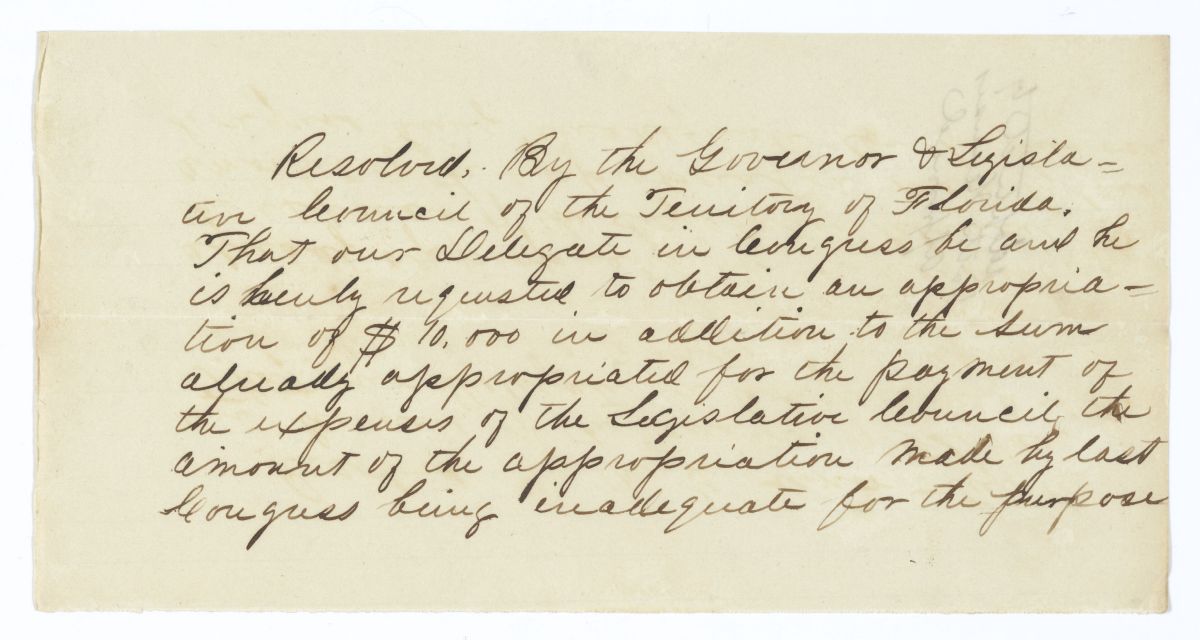 Resolved. By the Governor & Legisla=
tive Council of the Territory of Florida.
That our Delegate in Congress be and he
is hereby requested to obtain an appropria=
tion of $10,000 in addition to the sum
already appropriated for the payment of
the expenses of the Legislative Council, the
amount of the appropriation made by last
Congress being inadequate for the purpose